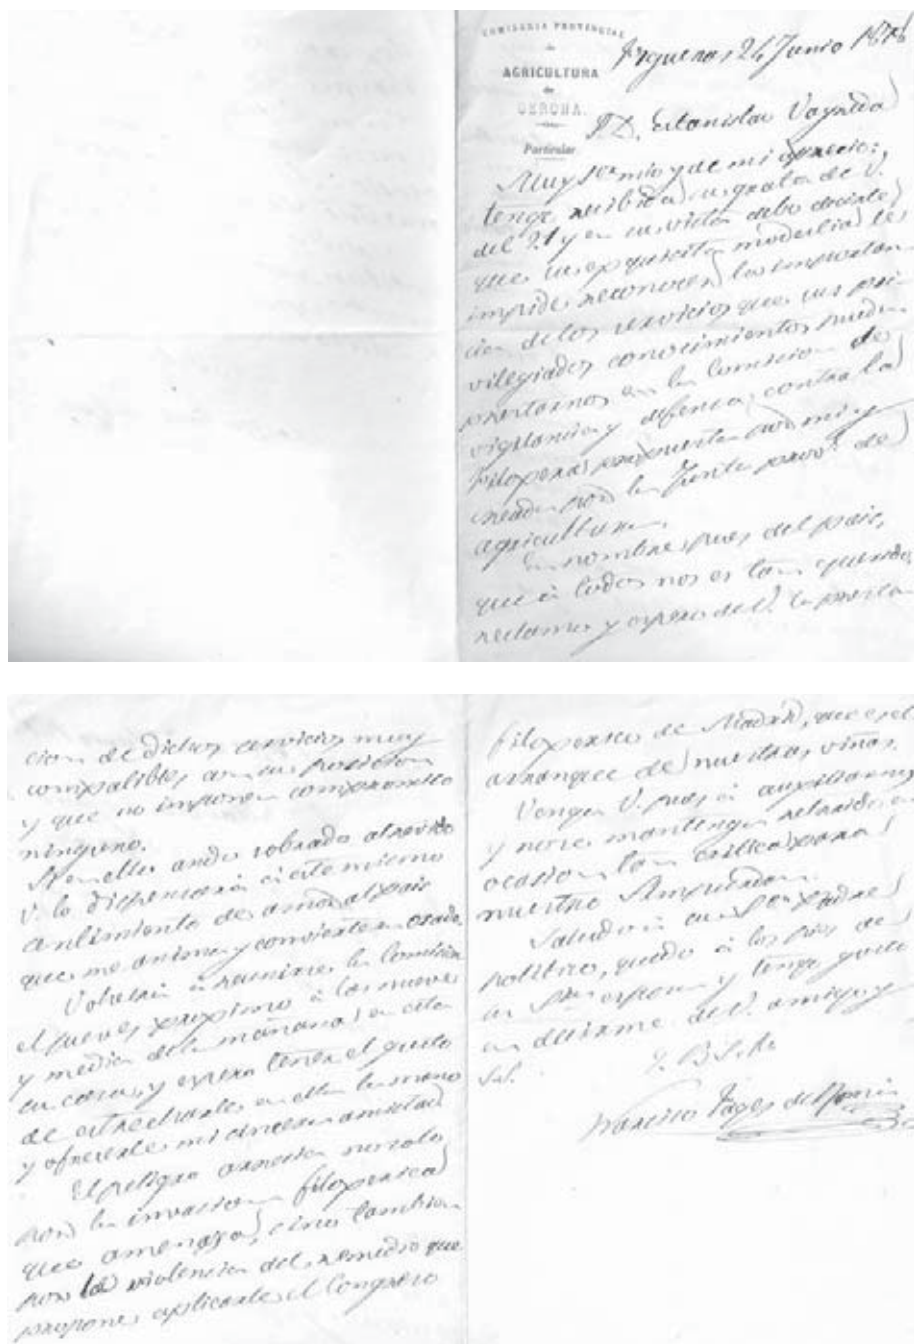 COMISARIA PROVINCIAL
de
AGRICULTURA
de
GERONA.
Particular
Figueras 24 Junio 1878
S. D. Estanislao Vayreda
Muy Sr. mio y de mi aprecio:
tengo recibida su grata de V.
del 21 y en su vista debo decirle
que su exquisita modestia le
impide reconocer la importan-
cia de los servicios que sus pri-
vilegiados conocimientos pueden
prestarnos en la Comision de
vigilancia y defensa contra la
filoxera, por mi y
creada por la Junta prov.l de
agricultura.
En nombre, pues del pais,
que à todos nos es tan querido,
reclamo y espero de V. la presta-
cion de dichos servicios muy
compatibles con su posicion
y que no imponen compromiso
ninguno.
Si en ello ando sobrado atrevido
V. lo dispensará à este mismo
sentimiento de amor al pais
que me anima y convierte en osado.
Volverá à reunirse la Comision
el jueves proximo à las nueve
y media de la mañana en esta
su casa, y espero tener el gusto
de estrecharle en ella la mano
y ofrecerle mi sincera amistad.
El peligro arrecia no solo
por la invasion filoxerica
que amenaza, sino tambien
por la violencia del remedio que
propone aplicarle el Congreso
filoxerico de Madrid, que es el
arranque de nuestras viñas.
Venga V. pues à auxiliarnos
y no se mantenga retraido en
ocasion tan critica para
nuestro Ampurdan.
Saludo à su Sr. padre
politico, quedo à los pies de
su Sra. esposa y tengo gusto
en decirme de V. amigo y
S.S.
Q. B. S. M.
Francisco Pages de Romá